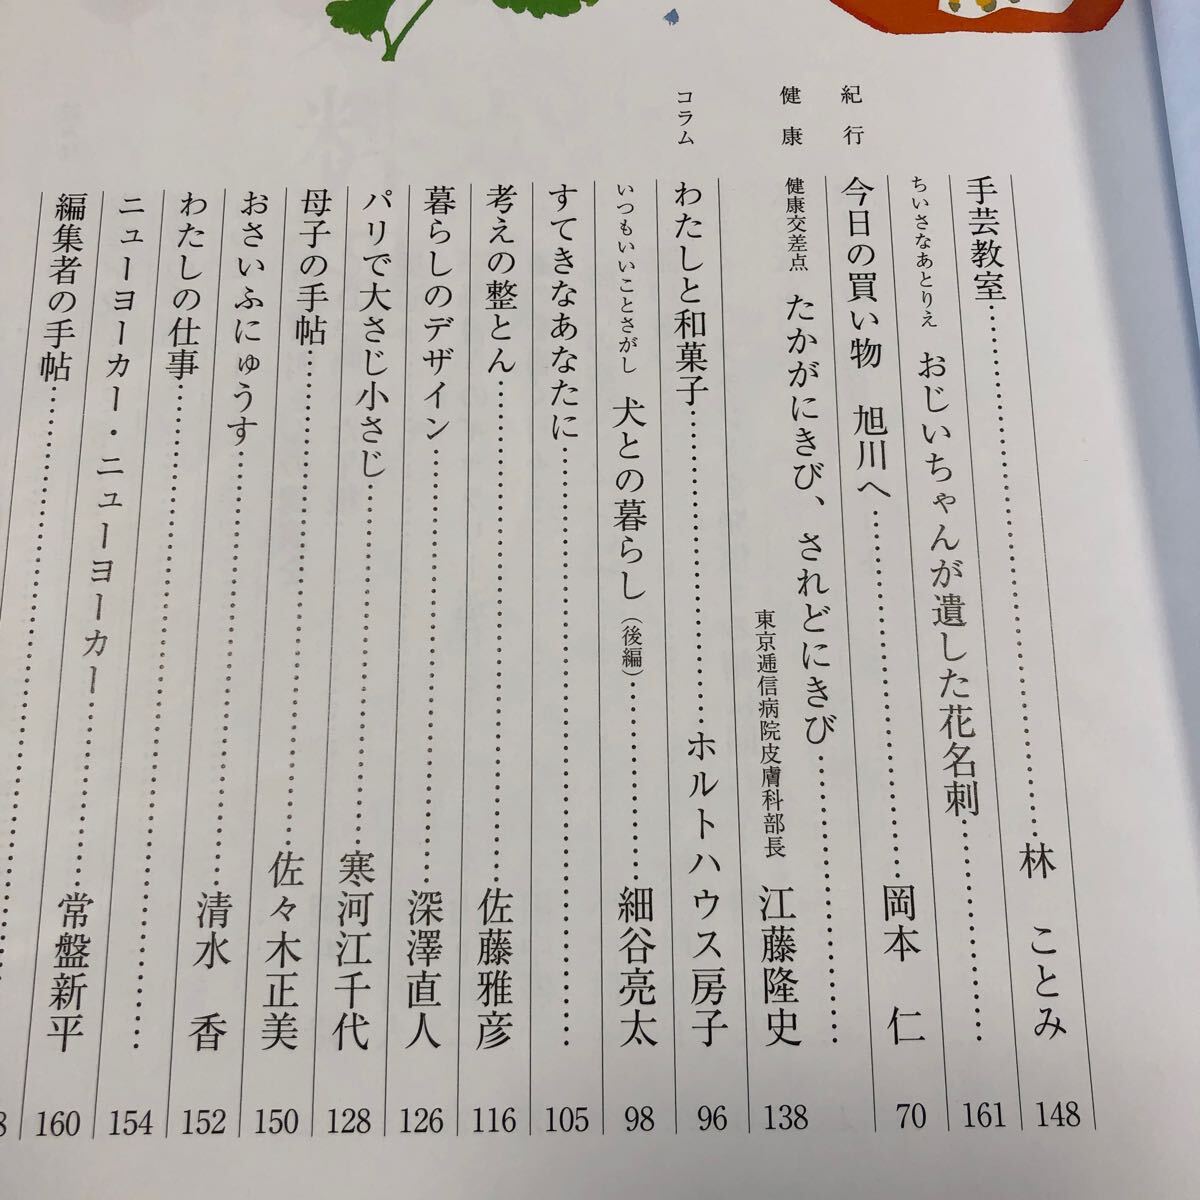 手芸教室……林 ことみ 148
ちいさなあとりえ おじいちゃんが遺した花名刺…… 161
紀行
今日の買い物 旭川へ……岡本 仁 70
健康
健康交差点 たかがにきび、されどにきび……
東京逓信病院皮膚科部長 江藤隆史 138
コラム
わたしと和菓子……ホルトハウス房子 96
いつもいいことさがし 犬との暮らし(後編)……細谷亮太 98
すてきなあなたに…… 105
考えの整とん……佐藤雅彦 116
暮らしのデザイン……深澤直人 126
パリで大さじ小さじ……寒河江千代 128
母子の手帖……佐々木正美 150
おさいふにゅうす……清水 香 152
わたしの仕事…… 154
ニューヨーカー・ニューヨーカー……常盤新平 160
編集者の手帖……